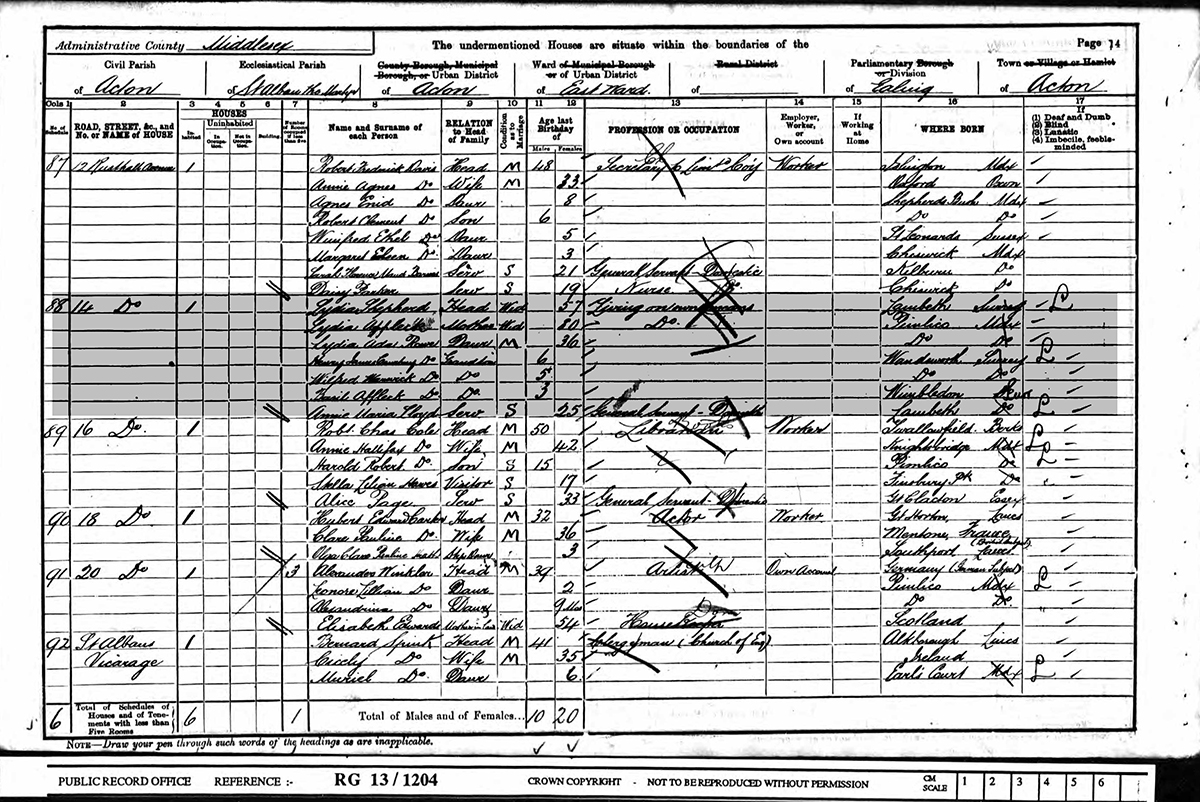 Administrative County Middlesex The undermentioned Houses are situate within the boundaries of the Page 14
Civil Parish Ecclesiastical Parish County Borough, Municipal Borough, or Urban District Ward of Municipal Borough or of Urban District Rural District Parliamentary Borough or Division Town or Village or Hamlet
of Acton of St Alban the Martyr of Acton of East Ward of of Ealing of Acton
Cols 1 2 3 4 5 6 7 8 9 10 11 12 13 14 15 16 17
No. of Schedule ROAD, STREET, &c., and No. or NAME of HOUSE HOUSES Inhabited Uninhabited In Occupation. Not in Occupation. Building. Number of Rooms occupied if less than five Name and Surname of each Person RELATION to Head of Family Condition as to Marriage Age last Birthday of Males Females PROFESSION OR OCCUPATION Employer, Worker, or Own account If Working at Home WHERE BORN If (1) Deaf and Dumb (2) Blind (3) Lunatic (4) Imbecile, feeble-minded
87 12 Rushall Avenue 1 Robert Frederick Davis Head M 48 Secretary Worker Islington Mdx
Annie Agnes Do Wife M 33 Oxford
Agnes Enid Do Daur 8 Shepherds Bush Mdx
Robert Clement Do Son 6 Do Do
Winifred Ethel Do Daur 5 St Leonards Sussex
Margaret Eileen Do Daur 3 Chiswick Mdx
Maud Serv S 21 General Servant - Domestic Kilburn Do
Daisy Parker Serv S 19 Nurse Do Chiswick Do
88 14 Do 1 Lydia Shepherd Head Wid 57 Living on own means Lambeth Surrey L
Lydia Affleck Mother Wid 80 Do. Pimlico Mdx
Lydia Ada Daur M 36 Do Do
Henry James Do Grandson 6 Wandsworth Surrey L
Wilfred Warwick Do Do 5 Do Do
Basil Affleck Do Do. 3 Wimbledon Surr
Annie Maria Lloyd Serv S 25 General Servant - Domestic Lambeth Do L
89 16 Do. 1 Robt. Chas Cole Head M 50 Librarian Worker Swallowfield Berks L
Annie Hallifax Do Wife M 42 Knightsbridge Mdx L
Harold Robert Do. Son S 15 Pimlico Do L
Stella Lilian Hawes Visitor S 17 Finsbury Pk Do
Alice Page Serv S 33 General Servant - Domestic Gt Clacton Essex
90 18 Do 1 Hubert Edward Carter Head M 32 Actor Worker Gt Horton,
Clare Pauline Do. Wife M 36 Mentone, France (British Subject)
Olga Clare Pauline Step Daur 3 Southport Lancs.
91 20 Do 1 3 Alexander Winkler Head M 39 Artist Own Account Germany (German Subject)
Leonore Lillian Do Daur 2 Pimlico Mdx L
Alexandrina Do Daur 9 Mos Do Do
Elisabeth Edwards Mother in Law Wid 54 House Keeper Scotland
92 St Albans Vicarage 1 Bernard Spink Head M 41 Clergyman (Church of Eng) Lincs
Cicely Do Wife M 35 Ireland
Muriel Do Daur 6 Earls Court Mdx L
6 Total of Schedules of Houses and of Tenements with less than Five Rooms 6 1 Total of Males and of Females... 10 20
NOTE—Draw your pen through such words of the headings as are inapplicable.
PUBLIC RECORD OFFICE REFERENCE :- RG 13/1204 CROWN COPYRIGHT - NOT TO BE REPRODUCED WITHOUT PERMISSION CM SCALE 1 2 3 4 5 6